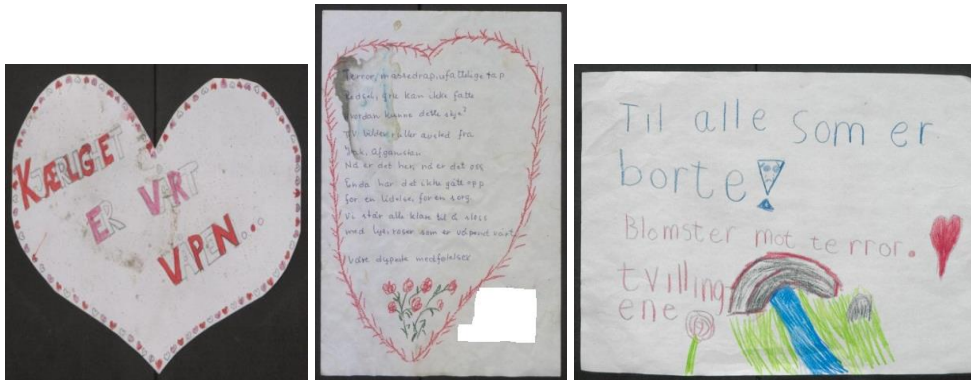 KÆRLIGET
ER VÅRT
VÅPEN...
Terror, massedrap, ufattelige tap
Redsel, ikke kan fatte
hvordan kunne dette skje?
TV bilder ruller avsted fra
Irak, Afganistan
Nå er det her, nå er det oss
Enda har det ikke gått opp
for en lidelse, for en sorg.
Vi står alle klar til å slåss
med lys, rosen som er våpenet vårt
Våre dypeste medfølelser
Til alle som er
borte
Blomster mot terror.
tvilling
ene